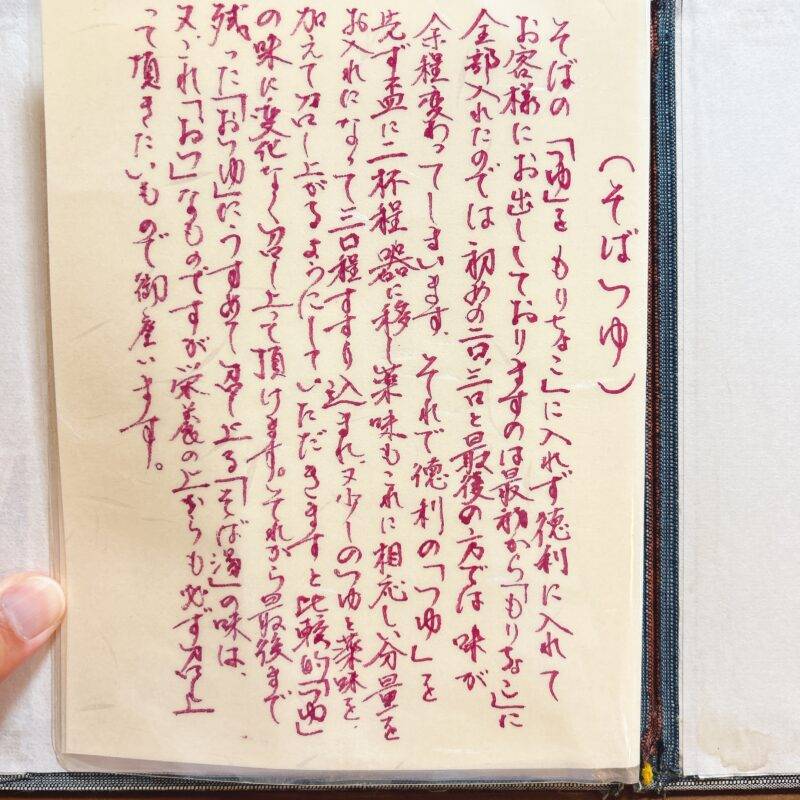 （そばつゆ）
そばの「つゆ」をもりちょこに入れず徳利に入れて
お客様にお出ししておりますのは最初から「もりちょこ」に
全部入れたのでは初めの二口、三口と最後の方では味が
余程変わってしまいます、それで徳利の「つゆ」を
先ず盃に二杯程器に移し薬味もこれに相応しい分量を
お入れになって三口程すすり込まれ、又少しのつゆと薬味を、
加えて召し上がるようにしていただきますと比較的「つゆ」
の味に変化なく召し上って頂けます。それから最後まで
残った「おつゆ」にうすめて召し上る「そば湯」の味は、
又、これ「おつ」なものですが栄養の上からも必ず召し上
って頂きたいもので御座います。